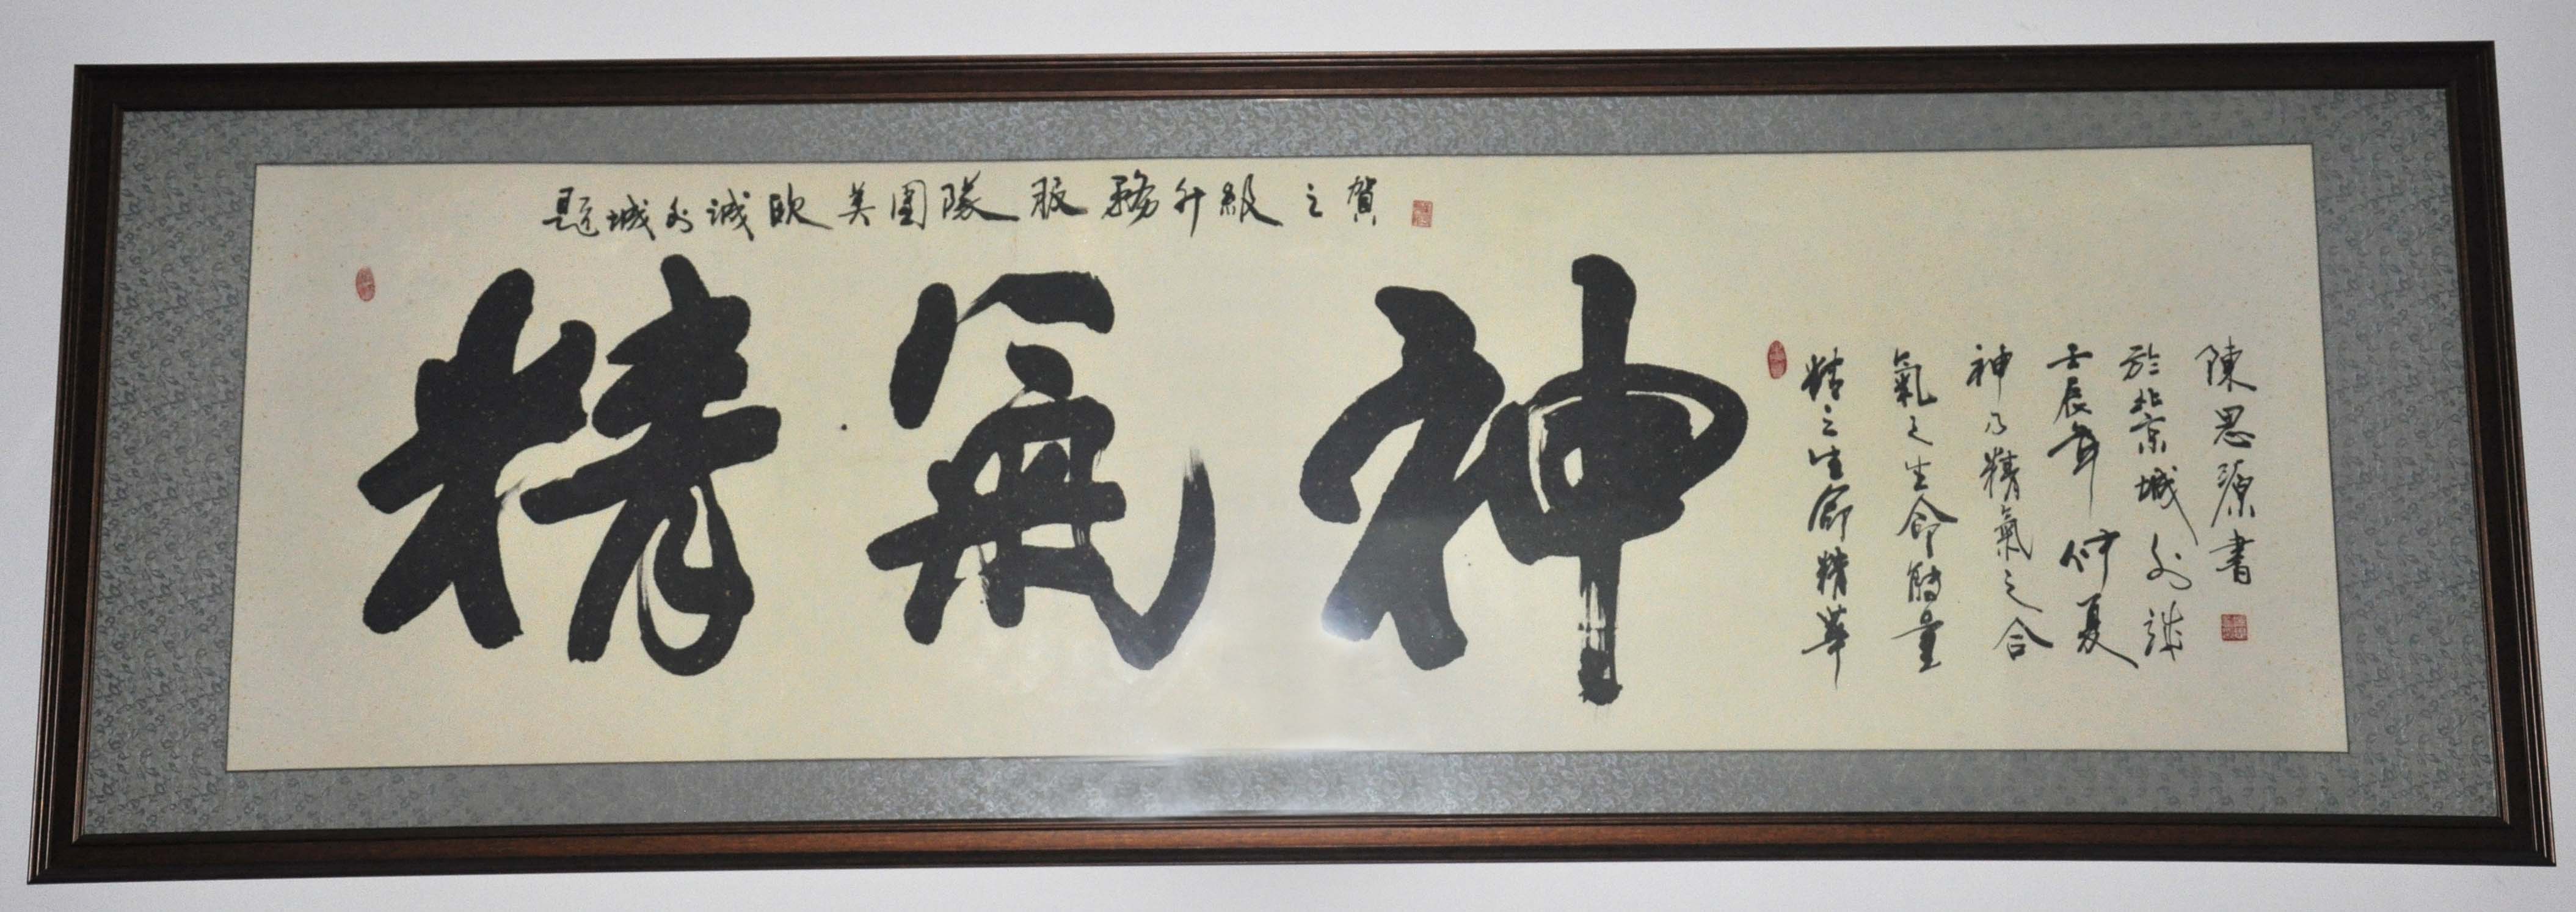 題城外誠欧美團隊服務升級之賀
精氣神
精之生命精華
氣之生命能量
神乃精氣之合
壬辰年仲夏
於北京城外誠
陳思源書